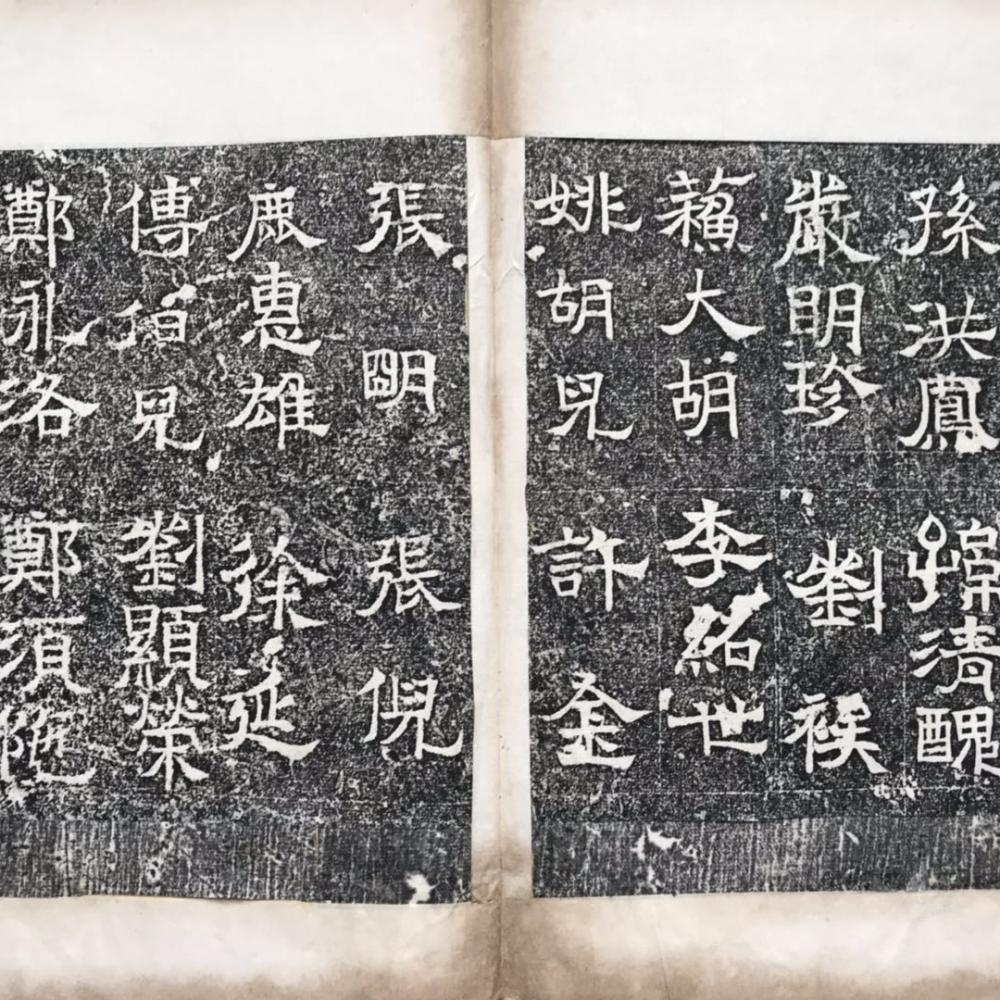 孫洪鳳 㦬清醜
嚴明珍 劉襆
蘓大胡 李紹世
姚胡兒 許金
張明 張倪
鹿惠雄 徐延
傅伯兒 劉顯榮
鄭永洛 鄭須陁